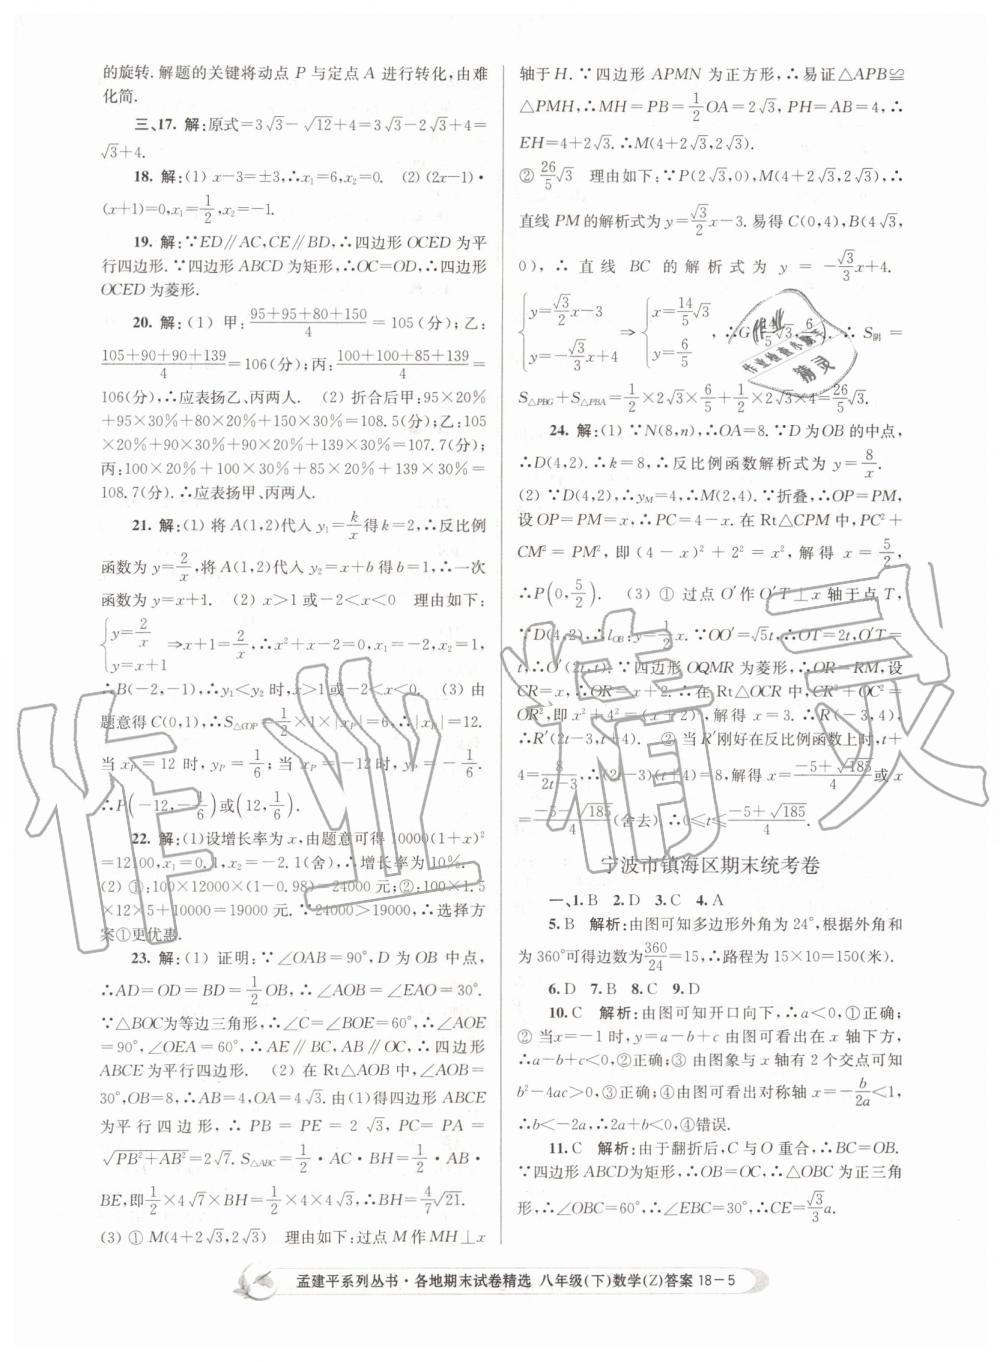 的旋转.解题的关键将动点 P 与定点 A 进行转化,由难
化简.
三、17. 解:原式=3√3-√12+4=3√3-2√3+4=
√3+4.
18. 解:(1) x-3=±3,∴x₁=6,x₂=0. (2) (2x-1)·
(x+1)=0,x₁=1/2,x₂=-1.
19. 解:∵ED∥AC,CE∥BD,∴四边形 OCED 为平
行四边形.∵四边形 ABCD 为矩形,∴OC=OD,∴四边形
OCED 为菱形.
20. 解:(1) 甲:(95+95+80+150)/4=105(分);乙:
(105+90+90+139)/4=106(分);丙:(100+100+85+139)/4=
106(分),∴应表扬乙、丙两人. (2) 折合后甲:95×20%
+95×30%+80×20%+150×30%=108.5(分);乙:105
×20%+90×30%+90×20%+139×30%=107.7(分);
丙:100×20%+100×30%+85×20%+139×30%=
108.7(分).∴应表扬甲、丙两人.
21. 解:(1) 将 A(1,2)代入 y₁=k/x得 k=2,∴反比例
函数为 y=2/x,将 A(1,2)代入 y₂=x+b 得 b=1,∴一次
函数为 y=x+1. (2) x>1 或-2<x<0 理由如下:
{y=2/x, y=x+1 ⇒x+1=2/x,∴x²+x-2=0,x₁=-2,x₂=1,
∴B(-2,-1),∴y₁<y₂ 时,x>1 或-2<x<0. (3) 由
题意得 C(0,1),∴S△COP=1/2×1×|xP|=6,∴|xP|=12.
当 xP=12 时,yP=1/6;当 xP=-12 时,yP=-1/6;
∴P(-12,-1/6)或(12,1/6).
22. 解:(1)设增长率为 x,由题意可得 10000(1+x)²
=12100,x₁=0.1,x₂=-2.1(舍),∴增长率为 10%.
(2) ①:100×12000×(1-0.98)=24000 元;②:100×1.5
×12×5+10000=19000 元.∵24000>19000,∴选择方
案①更优惠.
23. 解:(1) 证明:∵∠OAB=90°,D 为 OB 中点,
∴AD=OD=BD=1/2OB,∴∠AOB=∠EAO=30°.
∵△BOC为等边三角形,∴∠C=∠BOE=60°,∴∠AOE
=90°,∠OEA=60°,∴AE∥BC,AB∥OC,∴四边形
ABCE 为平行四边形. (2) 在 Rt△AOB 中,∠AOB=
30°,OB=8,∴AB=4,OA=4√3.由(1)得四边形 ABCE
为平行四边形,∴PB=PE=2√3,PC=PA=
√(PB²+AB²)=2√7.S△ABC=1/2·AC·BH=1/2·AB·
BE,即1/2×4√7×BH=1/2×4×4√3,∴BH=4/7√21.
(3) ① M(4+2√3,2√3) 理由如下:过点 M 作 MH⊥x
轴于 H.∵四边形 APMN 为正方形,∴易证△APB≌
△PMH,∴MH=PB=1/2OA=2√3,PH=AB=4,∴
EH=4+2√3.∴M(4+2√3,2√3).
② 26/5√3 理由如下:∵P(2√3,0),M(4+2√3,2√3),∴
直线 PM 的解析式为 y=√3/2x-3.易得 C(0,4),B(4√3,
0),∴直线 BC 的解析式为 y=-√3/3x+4.
{y=√3/2x-3, y=-√3/3x+4 ⇒ {x=14/5√3, y=6/5 ,∴G(14/5√3,6/5).∴S阴=
S△PBG+S△PBA=1/2×2√3×6/5+1/2×2√3×4=26/5√3.
24. 解:(1) ∵N(8,n),∴OA=8.∵D 为OB 的中点,
∴D(4,2).∴k=8,∴反比例函数解析式为 y=8/x.
(2) ∵D(4,2),∴yM=4,∴M(2,4).∵折叠,∴OP=PM,
设 OP=PM=x,∴PC=4-x.在 Rt△CPM 中,PC²+
CM²=PM²,即(4-x)²+2²=x²,解得 x=5/2,
∴P(0,5/2). (3) ① 过点 O′作 O′T⊥x 轴于点 T,
∵D(4,2),∴lOB:y=1/2x.∵OO′=√5t,∴OT=2t,O′T=
t,∴O′(2t,t).∵四边形 OQMR 为菱形,∴OR=RM,设
CR=x,∴OR=x+2.∴在 Rt△OCR 中,CR²+OC²=
OR²,即 x²+4²=(x+2)²,解得 x=3.∴R(-3,4),
∴R′(2t-3,t+4). ② 当 R′刚好在反比例函数上时,t+
4=8/(2t-3),∴(2t-3)(t+4)=8,解得 t=(-5+√185)/4或 x
=(-5-√185)/4(舍去).∴0≤t≤(-5+√185)/4.
宁波市镇海区期末统考卷
一、1. B 2. D 3. C 4. A
5. B 解析:由图可知多边形外角为 24°,根据外角和
为 360°可得边数为360/24=15,∴路程为 15×10=150(米).
6. D 7. B 8. C 9. D
10. C 解析:由图可知开口向下,∴a<0,①正确;
② 当x=-1 时,y=a-b+c 由图可看出在 x 轴下方,
∴a-b+c<0,②正确;③ 由图象与 x 轴有 2 个交点可知
b²-4ac>0,③正确;④由图可看出对称轴 x=-b/2a<1,
∴b<-2a,∴2a+b<0,④错误.
11. C 解析:由于翻折后,C 与 O 重合,∴BC=OB.
∵四边形 ABCD为矩形,∴OB=OC,∴△OBC 为正三角
形,∴∠OBC=60°,∴∠EBC=30°,∴CE=√3/3a.
孟建平系列丛书·各地期末试卷精选 八年级(下)数学(Z)答案 18-5
作业精灵
作业检查小助手
精灵